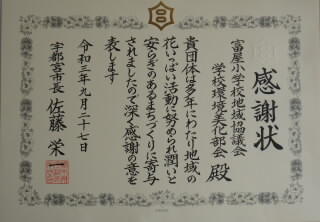 感謝状
富屋小学校地域協議会
学校環境美化部会 殿
貴団体は多年にわたり地域の
花いっぱい活動に努められ潤いと
安らぎのあるまちづくりに寄与
されましたので深く感謝の意を
表します
令和三年九月二十七日
宇都宮市長 佐藤栄一